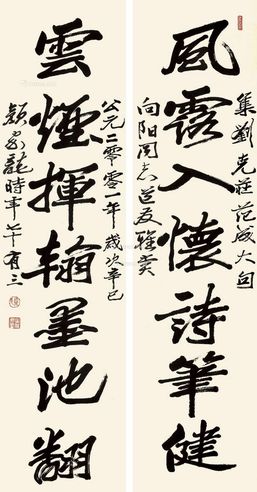 風露入懷詩筆健
集劉克莊范成大句
向阳同志道友雅賞
雲煙揮翰墨池翻
公元二零零一年歲次辛巳
顏家龍時年七十有三